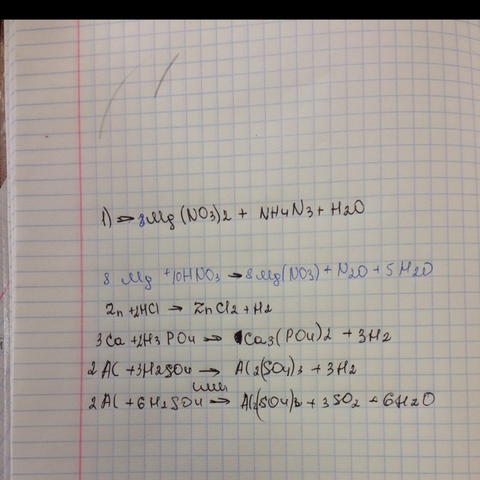 1) → 8Mg(NO3)2 + NH4N3 + H2O
8 Mg + 10HNO3 → 8Mg(NO3) + N2O + 5H2O
Zn + 2HCl → ZnCl2 + H2
3Ca + 2H3PO4 → Ca3(PO4)2 + 3H2
2Al + 3H2SO4 → Al2(SO4)3 + 3H2
или
2Al + 6H2SO4 → Al2(SO4)3 + 3SO2 + 6H2O